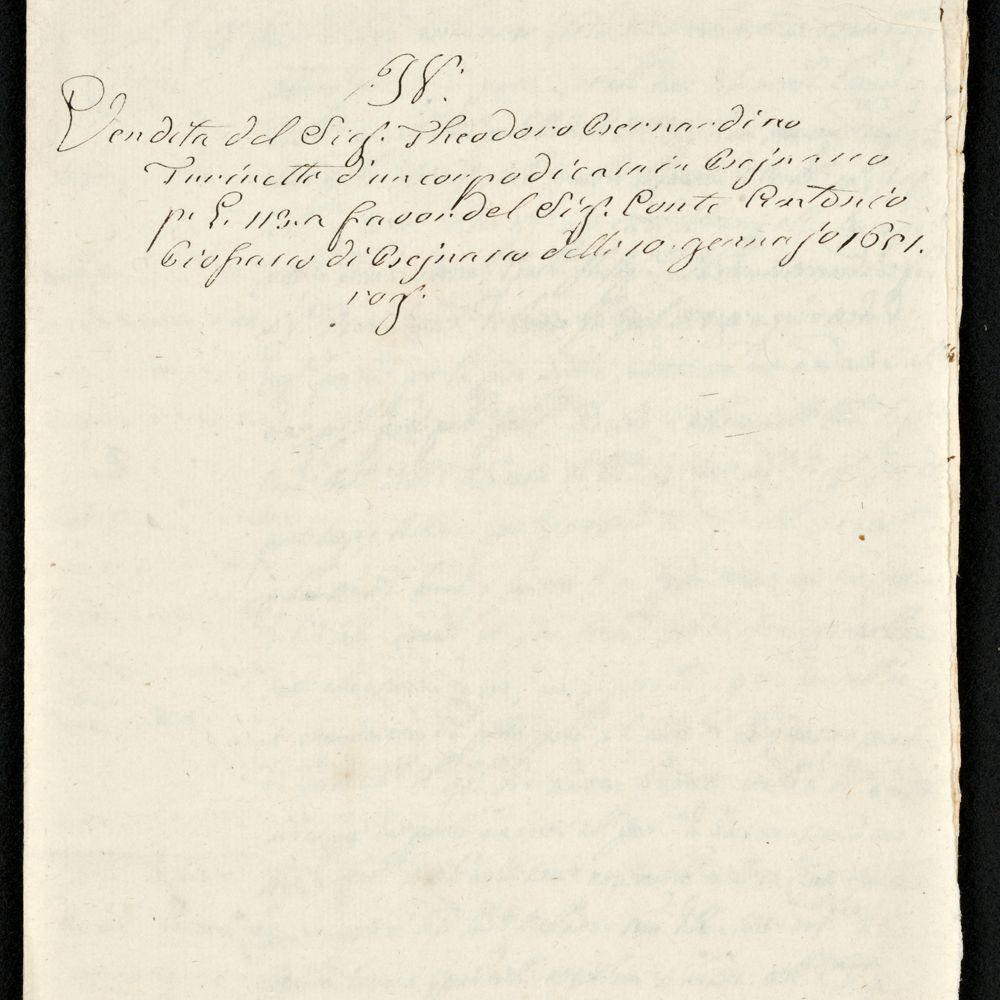 Vendita del Sig.r Theodoro Bernardino
Turinetto d'un corpo di casa in Bejnasco
p. L. 113. a favor del Sig.r Conte Antonio
di Bejnasco delli 10. gennajo 1651.
rog.